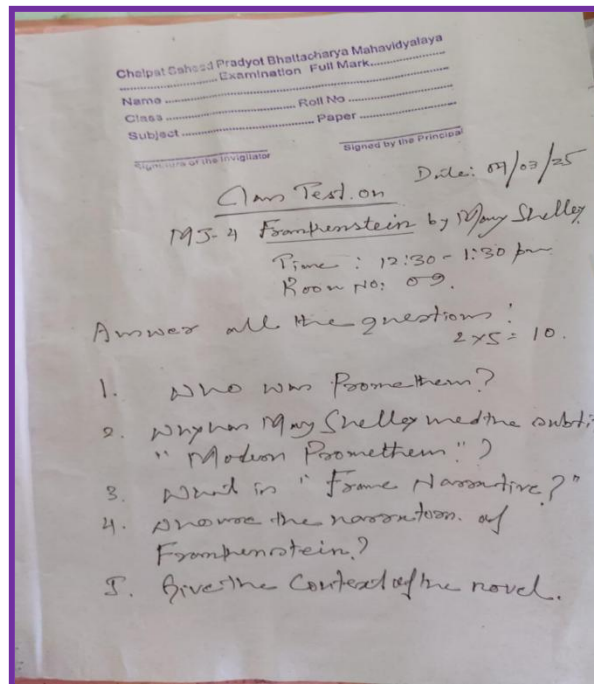 Chelpat Saheed Pradyot Bhattacharya Mahavidyalaya
.................... Examination Full Mark....................
Name .................... Roll No ....................
Class .................... Paper ....................
Subject ....................
Signature of the Invigilator Signed by the Principal
Date: 07/03/25
Class Test on
MJ-4 Frankenstein by Mary Shelley
Time : 12:30 - 1:30 pm
Room No: 09.
Answer all the questions:
2 x 5 = 10.
1. Who was Prometheus?
2. Why has Mary Shelley used the subti
"Modern Prometheus"?
3. What is "Frame Narrative?"
4. Who are the narrators of
Frankenstein?
5. Give the Context of the novel.